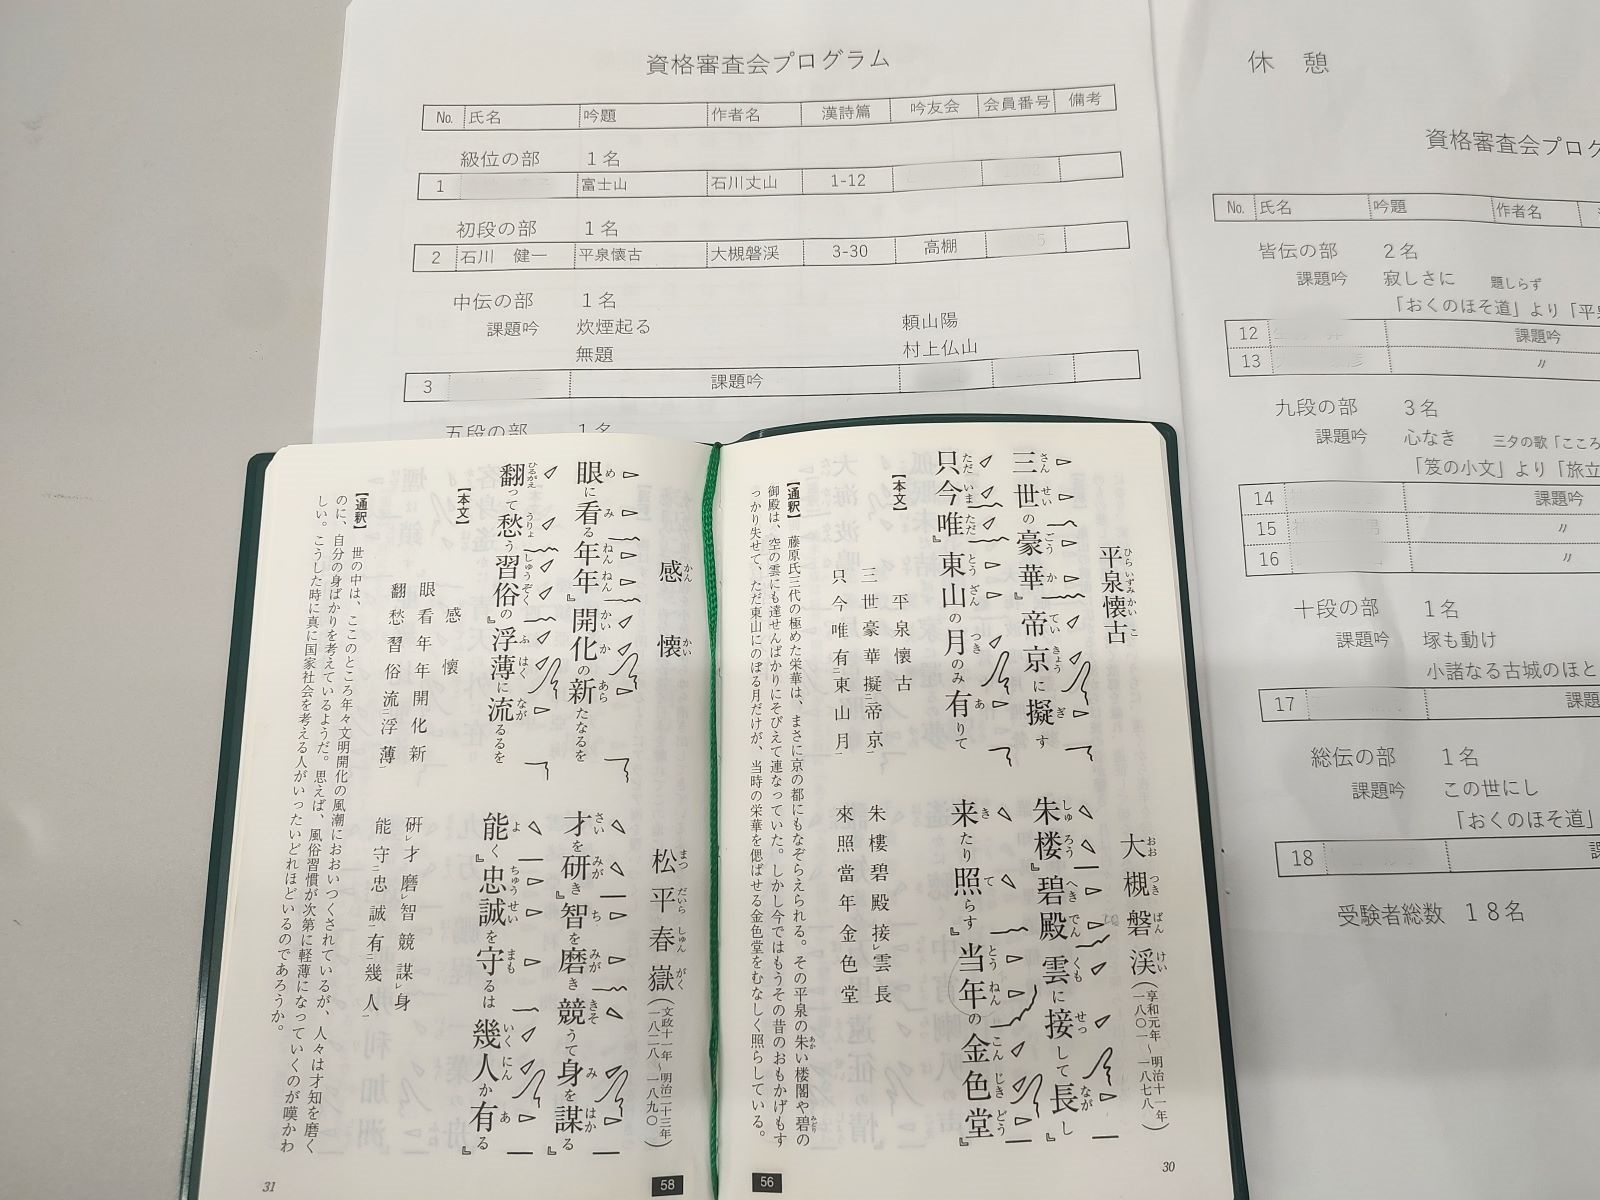 資格審査会プログラム
No. 氏名 吟題 作者名 漢詩篇 吟友会 会員番号 備考
級位の部 1名
1 富士山 石川丈山 1-12
初段の部 1名
2 石川 健一 平泉懐古 大槻磐渓 3-30 高棚
中伝の部 1名
課題吟 炊煙起る 頼山陽
無題 村上仏山
3 課題吟
五段の部 1名
休 憩
資格審査会プログ
No. 氏名 吟題 作者名
皆伝の部 2名
課題吟 寂しさに 題しらず
「おくのほそ道」より「平泉
12 課題吟
13 〃
九段の部 3名
課題吟 心なき 三夕の歌「こころ
「笈の小文」より「旅立
14 課題吟
15 〃
16 〃
十段の部 1名
課題吟 塚も動け
小諸なる古城のほと
17 課題
総伝の部 1名
課題吟 この世にし
「おくのほそ道」
18 課
受験者総数 18名
平泉懐古 大槻磐渓（享和元年～明治十一年 一八〇一～一八七八）
ひらいずみかいこ おおつきばんけい
三世の豪華』帝京に擬す 朱楼』碧殿雲に接して長し』
さんせい ごうか ていきょう ぎ しゅろう へきでんくも せっ なが
只今唯』東山の月のみ有りて 来たり照らす』当年の金色堂』
ただいまただ とうざん つき あ き て とうねん こんじきどう
【本文】
平泉懐古
三世豪華擬二帝京一 朱樓碧殿接レ雲長
只今唯有二東山月一 來照當年金色堂
【通釈】 藤原氏三代の極めた栄華は、まさに京の都にもなぞらえられる。その平泉の朱い楼閣や碧の
御殿は、空の雲にも達せんばかりにそびえて連なっていた。しかし今ではもうその昔のおもかげもす
っかり失せて、ただ東山にのぼる月だけが、当時の栄華を偲ばせる金色堂をむなしく照らしている。
56
30
感懐 松平春嶽（文政十一年～明治二十三年 一八二八～一八九〇）
かんかい まつだいらしゅんがく
眼に看る年年』開化の新たなるを 才を研き』智を磨き競うて身を謀る』
め み ねんねん かいか あら さい みが ち みが きそ み はか
翻って愁う習俗の』浮薄に流るるを 能く』忠誠を守るは幾人か有る』
ひるがえ うりょ しゅうぞく ふはく なが よ ちゅうせい まも いくにん あ
【本文】
感懐
眼看年年開化新 研レ才磨レ智競謀レ身
翻愁習俗流二浮薄一 能守二忠誠一有二幾人一
【通釈】 世の中は、ここのところ年々文明開化の風潮におおいつくされているが、人々は才知を磨く
のに、自分の身ばかりを考えているようだ。思えば、風俗習慣が次第に軽薄になっていくのが嘆かわ
しい。こうした時に真に国家社会を考える人がいったいどれほどいるのであろうか。
58
31